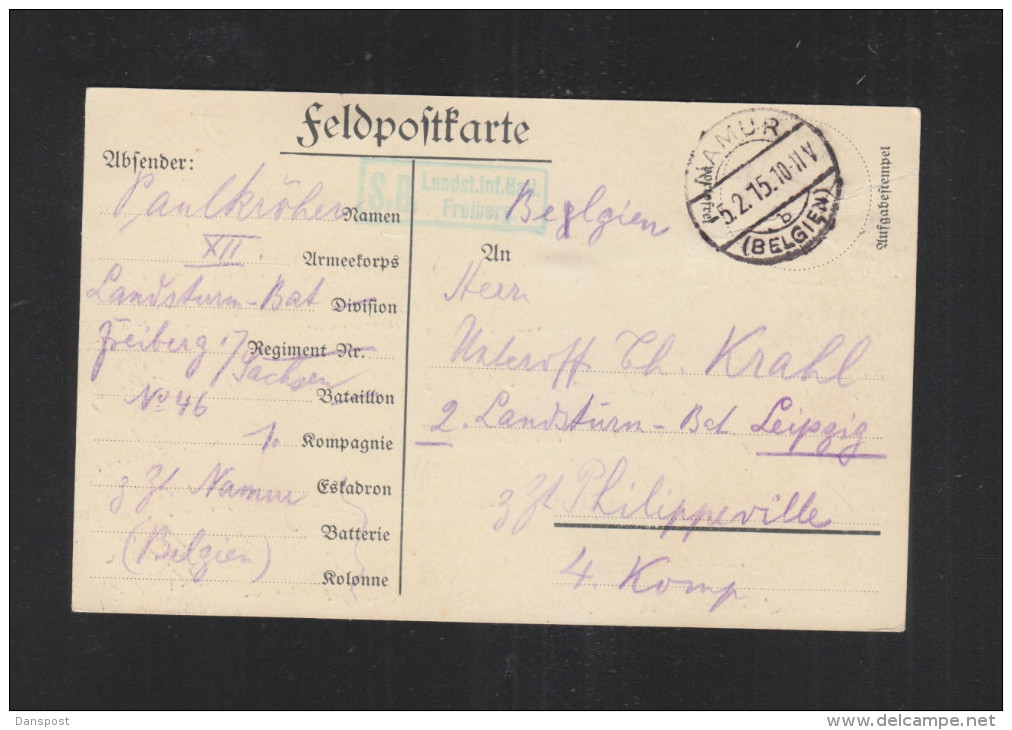 Feldpostkarte
Absender:
Namen
XII. Armeekorps
Landsturm-Bat Division
Freiberg / Regiment Nr.
Sachsen
No 46 Bataillon
1. Kompagnie
z Zt. Namur Eskadron
Batterie
(Belgien)
Kolonne
S.B. Landst.Inf.Bat.
Freiberg
NAMUR
5.2.15.10-11V
b
(BELGIEN)
portofrei
Aufgabestempel
Belgien
An
Herrn
Unteroff. Th. Krahl
2. Landsturm-Bat Leipzig
z Zt Philippeville
4. Komp.
Danspost
www.delcampe.net